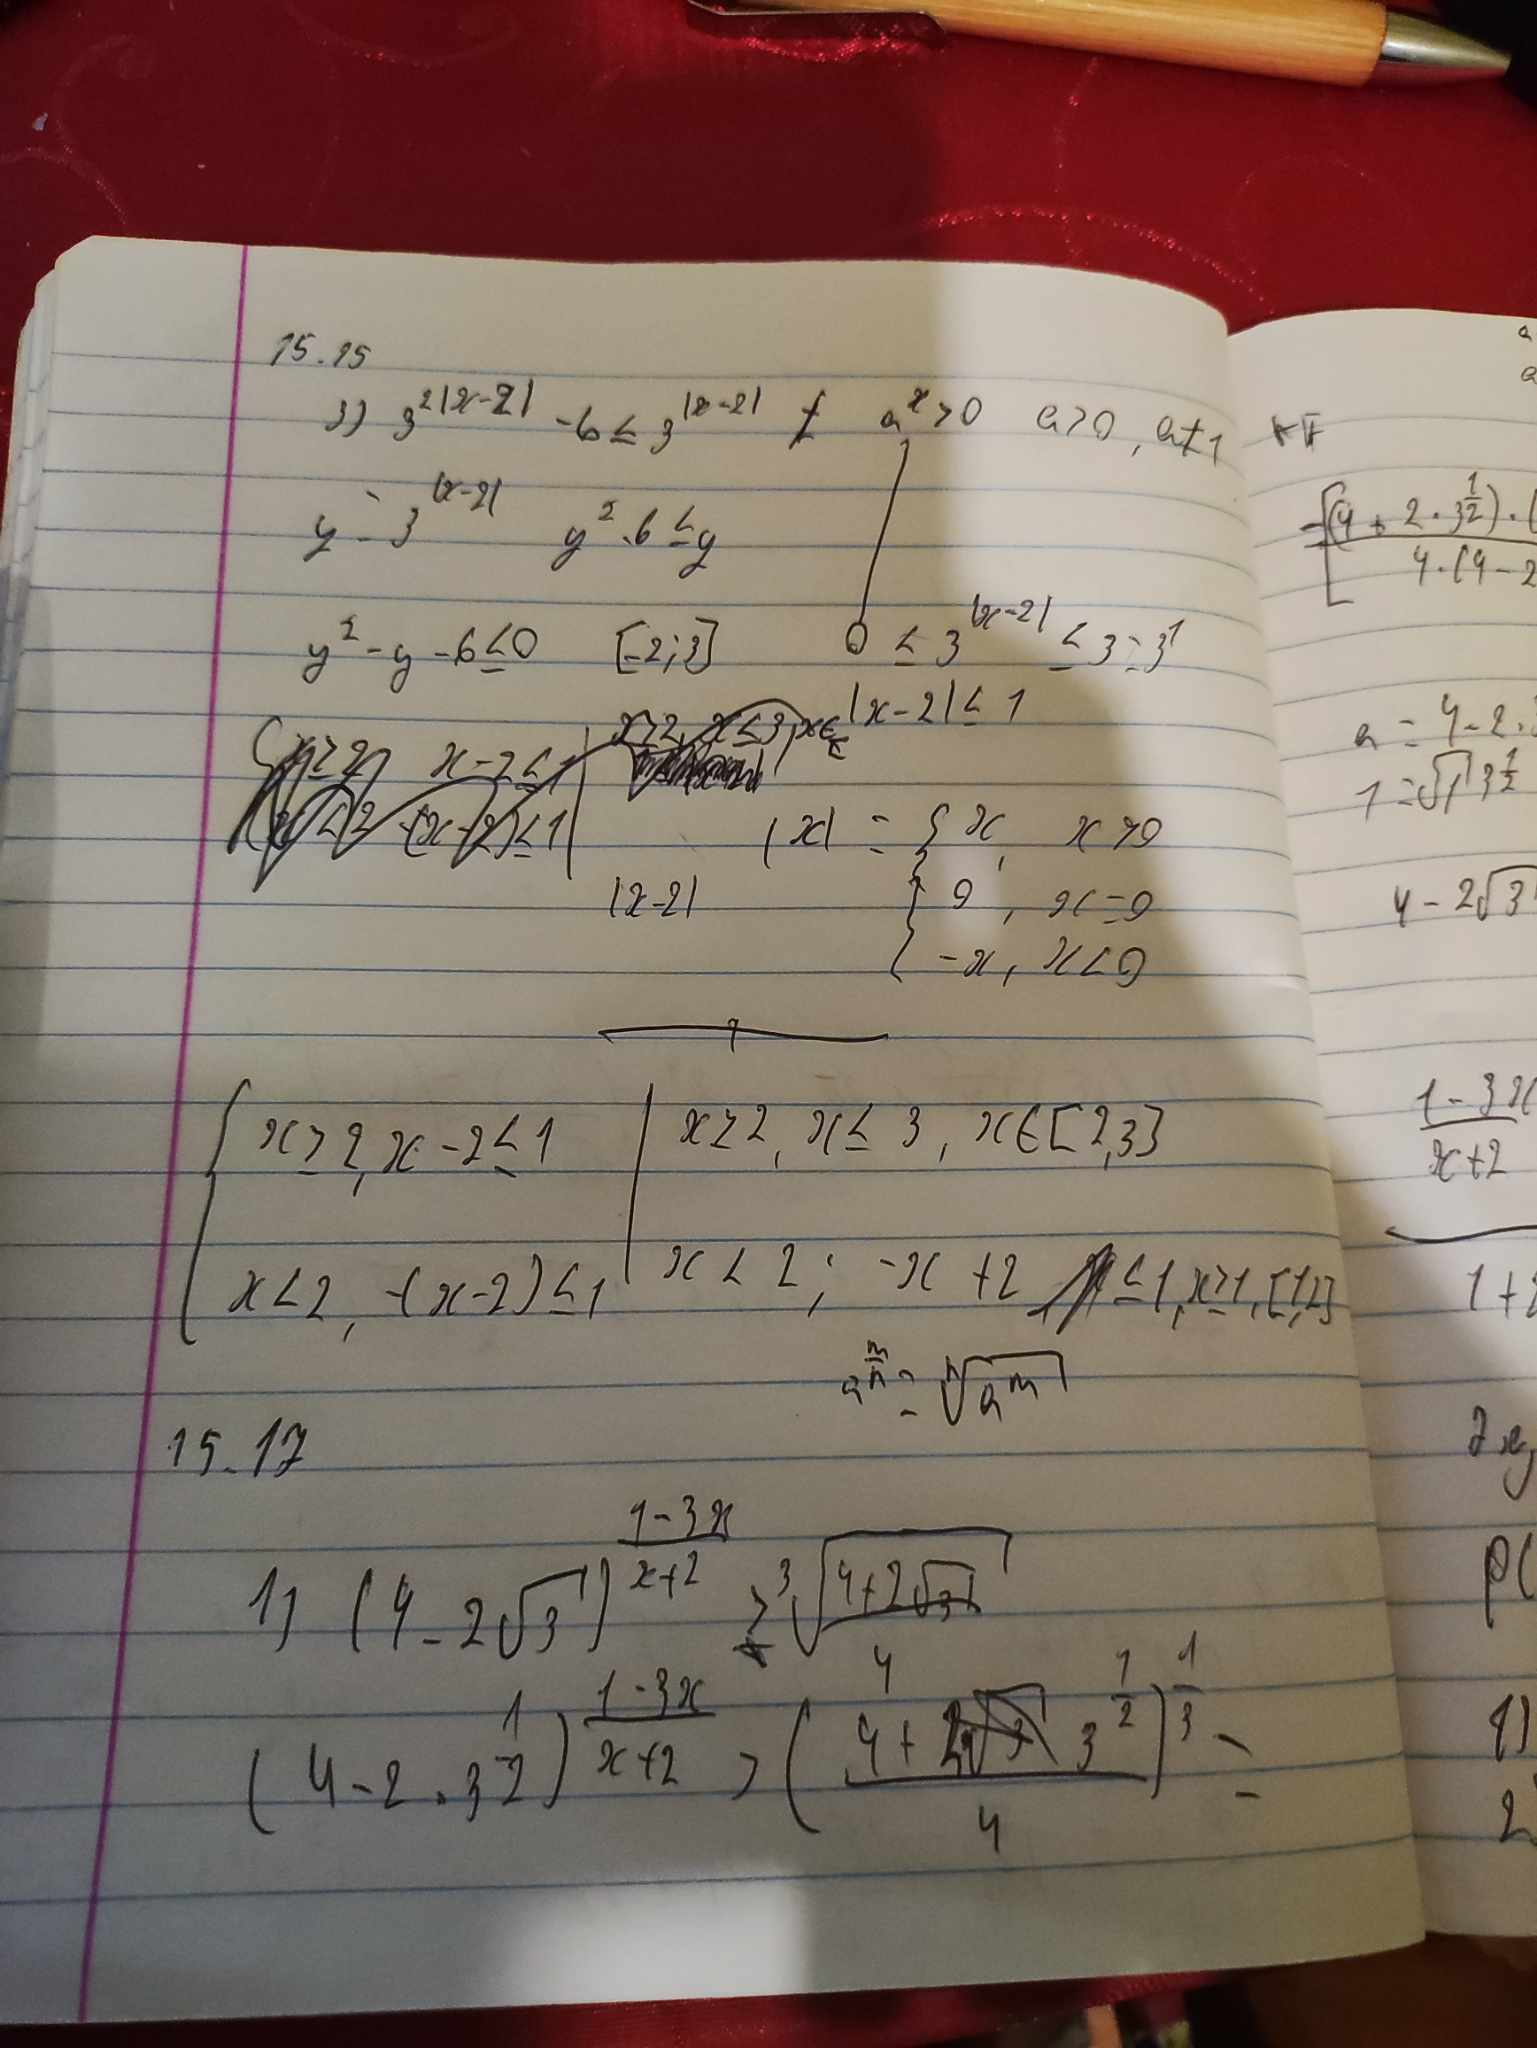 15.15
3) 3^{2|x-2|} - 6 ≤ 3^{|x-2|} a^x > 0 a > 0, a ≠ 1
y = 3^{|x-2|} y^2 - 6 ≤ y
y^2 - y - 6 ≤ 0 [-2; 3] 0 ≤ 3^{|x-2|} ≤ 3 = 3^1
|x-2| ≤ 1
x ≥ 2 x - 2 ≤ 1 | x ≥ 2, x ≤ 3, x ∈
x < 2 -(x-2) ≤ 1
|x| = { x, x > 0
|x-2| { 0, x = 0
{ -x, x < 0
{ x ≥ 2, x - 2 ≤ 1 | x ≥ 2, x ≤ 3, x ∈ [2,3]
{ x < 2, -(x-2) ≤ 1 | x < 2; -x + 2 ≤ 1, x ≥ 1, [1,2]
a^{\frac{m}{n}} = \sqrt[n]{a^m}
15.17
1) (4 - 2√3)^{\frac{1-3x}{x+2}} ≥ \sqrt[3]{\frac{4+2√3}{4}}
(4 - 2 · 3^{\frac{1}{2}})^{\frac{1-3x}{x+2}} > (\frac{4 + 2 3^{\frac{1}{2}}}{4})^{\frac{1}{3}} =
[(4 + 2 · 3^{\frac{1}{2}}) · (
4 · (4 - 2
a = 4 - 2 ·
1 = √1 3^{\frac{1}{2}}
4 - 2√3
\frac{1-3x}{x+2}
1 +
p(
1)
2